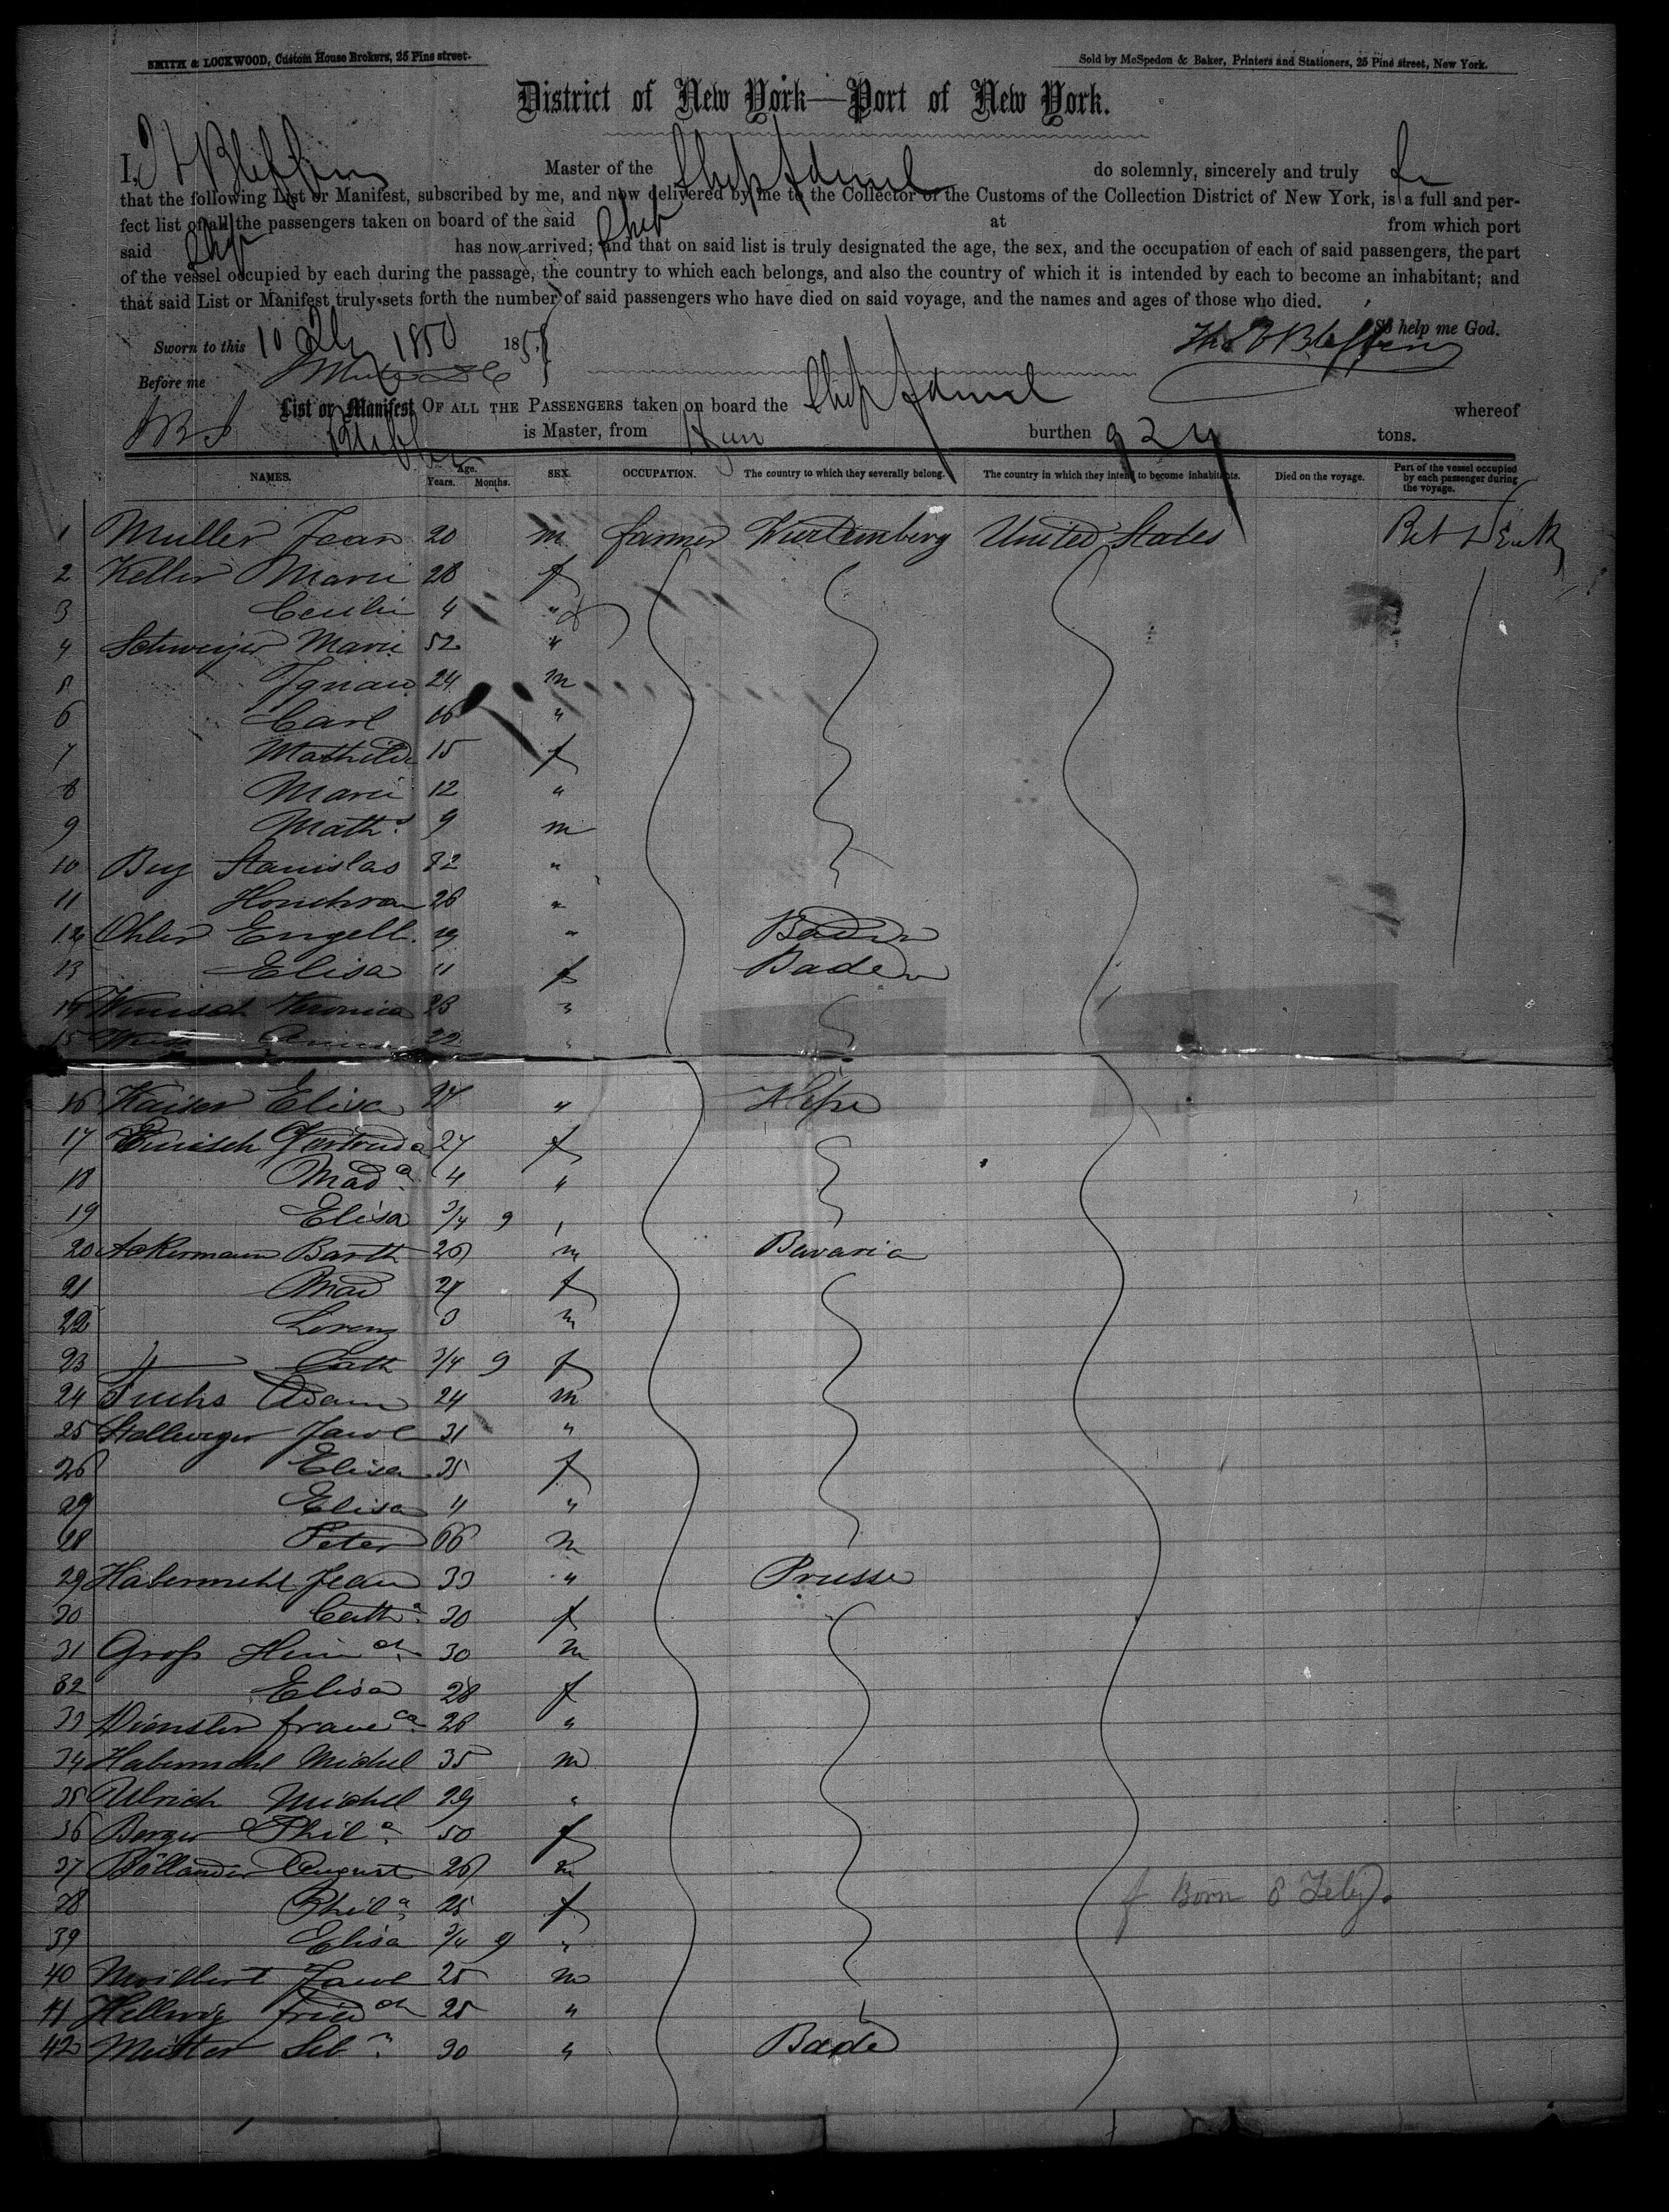 SMITH & LOCKWOOD, Custom House Brokers, 25 Pine street.
Sold by McSpedon & Baker, Printers and Stationers, 25 Pine street, New York.
District of New York—Port of New York.
I, Master of the Ship Admiral do solemnly, sincerely and truly
that the following List or Manifest, subscribed by me, and now delivered by me to the Collector of the Customs of the Collection District of New York, is a full and per-
fect list of all the passengers taken on board of the said Ship at from which port
said Ship has now arrived; and that on said list is truly designated the age, the sex, and the occupation of each of said passengers, the part
of the vessel occupied by each during the passage, the country to which each belongs, and also the country of which it is intended by each to become an inhabitant; and
that said List or Manifest truly sets forth the number of said passengers who have died on said voyage, and the names and ages of those who died.
So help me God.
Sworn to this 10 1850 185
Before me
List or Manifest OF ALL THE PASSENGERS taken on board the Ship Admiral whereof
is Master, from burthen 924 tons.
NAMES. Age. Years. Months. SEX. OCCUPATION. The country to which they severally belong. The country in which they intend to become inhabitants. Died on the voyage. Part of the vessel occupied by each passenger during the voyage.
1 Muller Jean 20 m farmer Wurtemberg United States Bet Deck
2 Keller Marie 28 f
3 Cecilie 4 "
4 Schweizer Marie 52 "
5 Ignace 24 m
6 Carl 16 "
7 Mathilde 15 f
8 Marie 12 "
9 Math.s 9 m
10 Bug Stanislas 32 "
11 26 "
12 Ohler Engelb. 29 " Baden
13 Elisa 11 f Baden
14 Wunsch Veronica 23 "
15 22 "
16 Kaiser Elisa 24 " Hesse
17 Gertruda 27 f
18 Mad.a 4 "
19 Elisa 3/4 9 "
20 Ackermann Barth 26 m Bavaria
21 Mad 24 f
22 Lorenz 3 m
23 " Cath 3/4 9 f
24 Fuchs Adam 24 m
25 Stellweger Jacob 31 "
26 Elisa 35 f
27 Elisa 4 "
28 Peter 66 m
29 Habermehl Jean 33 " Prusse
30 Cath.a 30 f
31 Groß Heinrch. 30 m
32 Elisa 28 f
33 Dienster Franca. 26 "
34 Habermehl Michel 35 m
35 Ulrich Michel 29 "
36 Berger Phil.a 50 f
37 Böllander August 26 m
38 Phil.a 25 f f Born 8 Feby.
39 Elisa 3/4 9 "
40 Jacob 25 m
41 Hellwig Friedch 25 "
42 Meister Seb.n 30 " Bade